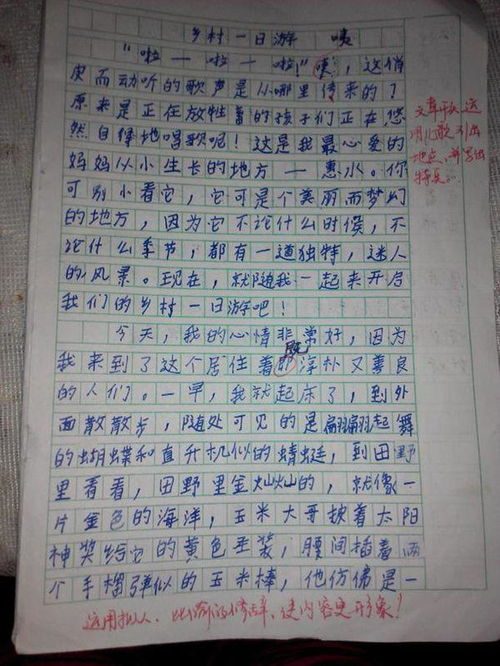 乡村一日游 咦
“啦—啦—啦!”咦,这俏
皮而动听的歌声是从哪里传来的?
原来是正在放牲着的孩子们正在悠
然自得地唱歌呢!这是我最心爱的
妈妈从小生长的地方—惠水。你
可别小看它,它可是个美丽而梦幻
的地方,因为它不论什么时候,不
论什么季节,都有一道独特,迷人
的风景。现在,就随我一起来开启
我们的乡村一日游吧!
今天,我的心情非常好,因为
我来到了这个居住着既淳朴又善良
的人们。一早,我就起床了,到外
面散散步,随处可见的是翩翩起舞
的蝴蝶和直升机似的蜻蜓,到田野
里看看,田野里金灿灿的,就像一
片金色的海洋,玉米大哥披着太阳
神奖给它的黄色圣装,腰间插着两
个手榴弹似的玉米棒,他仿佛是一
文章开头运
用儿歌引出
地点,并写出
特点。
运用拟人、比喻的修辞,使内容更形象!